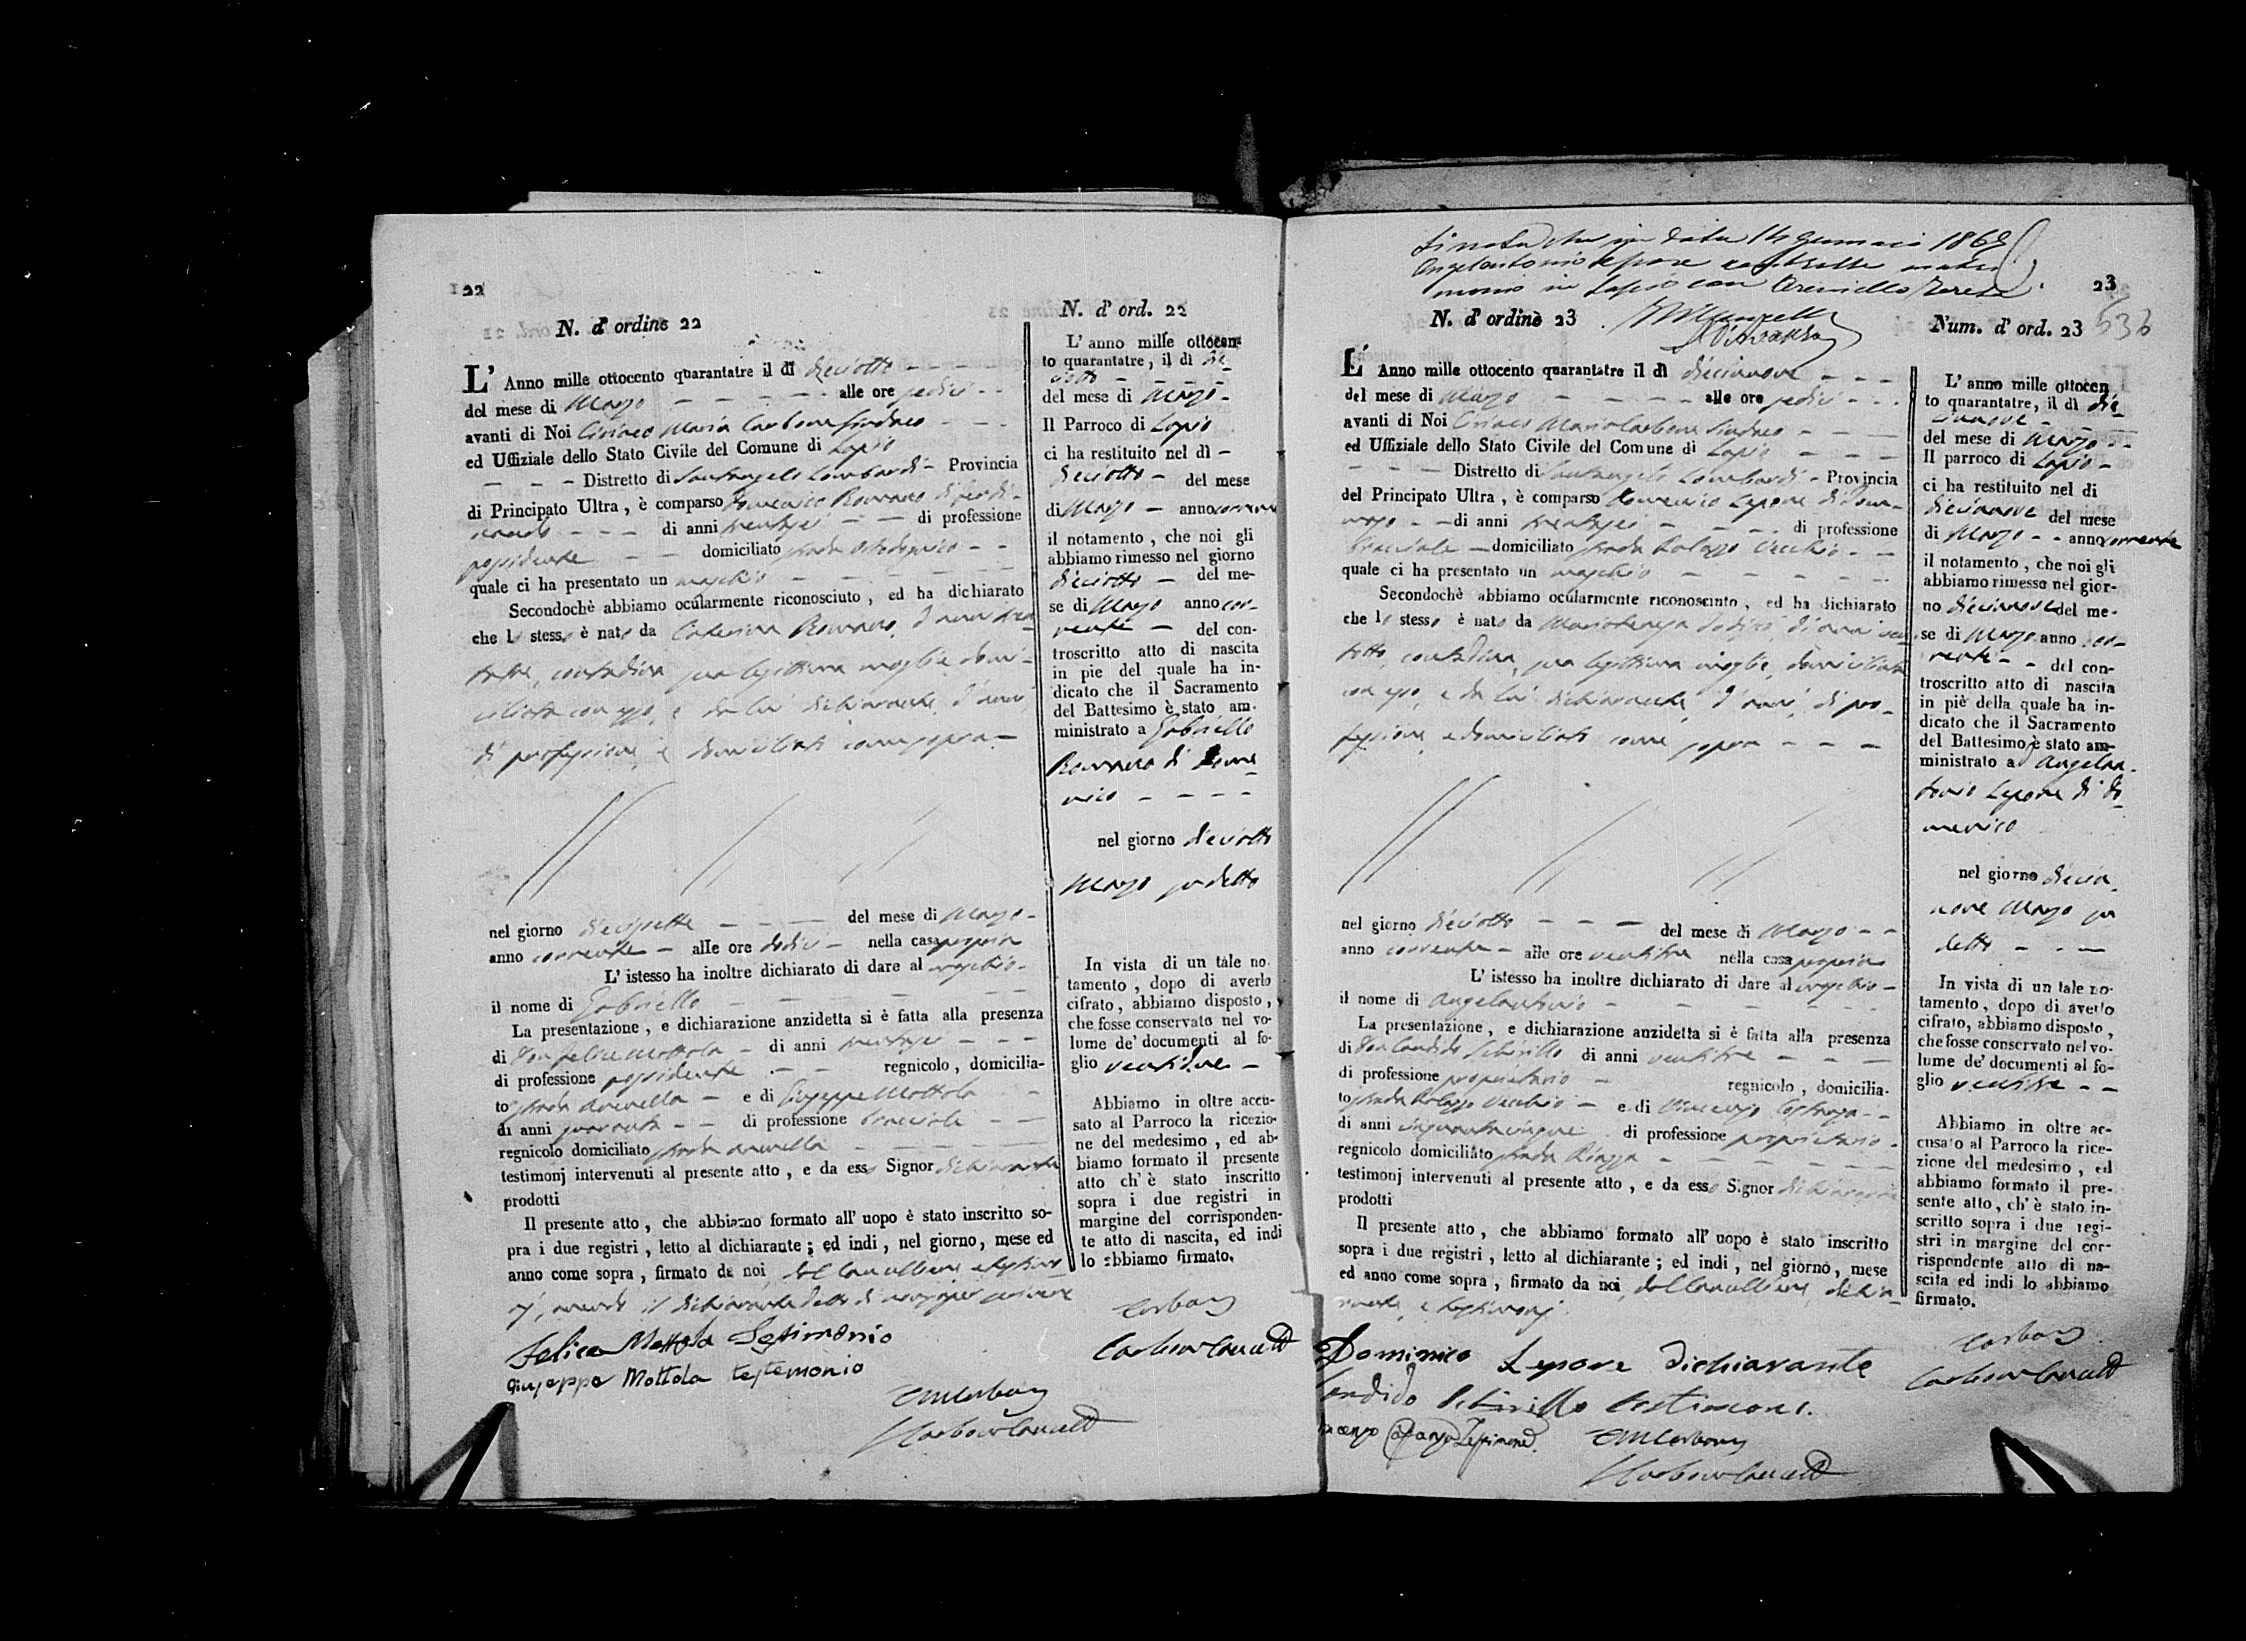 22
N. d' ordine 22
L' Anno mille ottocento quarantatre il dì dieciotto
del mese di Marzo alle ore sedici
avanti di Noi Ciriaco Maria Carbone Sindaco
ed Uffiziale dello Stato Civile del Comune di Lapio
Distretto di Santangelo Lombardi Provincia
di Principato Ultra, è comparso Domenico Romano di Ferdi-
nando di anni trentasei di professione
possidente domiciliato strada
quale ci ha presentato un maschio
Secondochè abbiamo ocularmente riconosciuto, ed ha dichiarato
che lo stesso è nato da Caterina Romano, d'anni tren
tatre, contadina, sua legittima moglie, domi-
ciliata con esso, e da lui dichiarante, d'anni,
di professione, e domiciliato come sopra
nel giorno diecisette del mese di Marzo
anno corrente alle ore dodici nella casa propria
L' istesso ha inoltre dichiarato di dare al maschio
il nome di Gabriello
La presentazione, e dichiarazione anzidetta si è fatta alla presenza
di Don Felice Mottola di anni trentasei
di professione possidente regnicolo, domicilia-
to strada e di Giuseppe Mottola
di anni quaranta di professione bracciale
regnicolo domiciliato strada
testimonj intervenuti al presente atto, e da esso Signor dichiarante
prodotti
Il presente atto, che abbiamo formato all' uopo è stato inscritto so-
pra i due registri, letto al dichiarante; ed indi, nel giorno, mese ed
anno come sopra, firmato da noi, dal Cancelliere, e testimo
nj, avendo il dichiarante detto di non saper scrivere
Felice Mottola Testimonio
Giuseppe Mottola testemonio
CMCarbone
Carbone Cancell
N. d' ord. 22
L' anno mille ottocen-
to quarantatre, il dì die
ciotto
del mese di Marzo
Il Parroco di Lapio
ci ha restituito nel dì
dieciotto del mese
di Marzo anno corrente
il notamento, che noi gli
abbiamo rimesso nel giorno
dieciotto del me-
se di Marzo anno cor-
rente del con-
troscritto atto di nascita
in pie del quale ha in-
dicato che il Sacramento
del Battesimo è stato am-
ministrato a Gabriello
Romano di Dome
nico
nel giorno dieciotto
Marzo sudetto
In vista di un tale no-
tamento, dopo di averlo
cifrato, abbiamo disposto,
che fosse conservato nel vo-
lume de' documenti al fo-
glio ventidue
Abbiamo in oltre accu-
sato al Parroco la ricezio-
ne del medesimo, ed ab-
biamo formato il presente
atto ch' è stato inscritto
sopra i due registri in
margine del corrisponden-
te atto di nascita, ed indi
lo abbiamo firmato.
Carbone
Carbone Cancell
Si nota che in data 14 Gennaio 1869
Angelantonio Lepore contrasse matri
monio in Lapio con Teresa
23
N. d' ordine 23
L' Anno mille ottocento quarantatre il dì diecinove
del mese di Marzo alle ore sedici
avanti di Noi Ciriaco Maria Carbone Sindaco
ed Uffiziale dello Stato Civile del Comune di Lapio
Distretto di Santangelo Lombardi Provincia
del Principato Ultra, è comparso Domenico Lepore di
di anni trentasei di professione
bracciale domiciliato strada Palazzo Vecchio
quale ci ha presentato un maschio
Secondochè abbiamo ocularmente riconosciuto, ed ha dichiarato
che lo stesso è nato da Mariateresa d'anni ven
totto, contadina, sua legittima moglie, domiciliata
con esso, e da lui dichiarante, d'anni, di pro-
fessione, e domiciliato come sopra
nel giorno dieciotto del mese di Marzo
anno corrente alle ore ventitre nella casa propria
L' istesso ha inoltre dichiarato di dare al maschio
il nome di Angelantonio
La presentazione, e dichiarazione anzidetta si è fatta alla presenza
di Don Candido Schirillo di anni ventitre
di professione proprietario regnicolo, domicilia-
to strada Palazzo Vecchio e di Vincenzo
di anni cinquantacinque di professione proprietario
regnicolo domiciliato strada Piazza
testimonj intervenuti al presente atto, e da esso Signor dichiarante
prodotti
Il presente atto, che abbiamo formato all' uopo è stato inscritto
sopra i due registri, letto al dichiarante; ed indi, nel giorno, mese
ed anno come sopra, firmato da noi, dal Cancelliere, dichia-
rante, e testimonj
Dominico Lepore Dichiarante
Candido Schirillo Testimone
CMCarbone
Carbone Cancell
Num. d' ord. 23 536
L' anno mille ottocen
to quarantatre, il dì die-
cinove
del mese di Marzo
Il parroco di Lapio
ci ha restituito nel di
diecinove del mese
di Marzo anno corrente
il notamento, che noi gli
abbiamo rimesso nel gior-
no diecinove del me-
se di Marzo anno cor-
rente del con-
troscritto atto di nascita
in piè della quale ha in-
dicato che il Sacramento
del Battesimo è stato am-
ministrato a Angelan-
tonio Lepore di Do-
menico
nel giorno diecin
nove Marzo su
detto
In vista di un tale no-
tamento, dopo di averlo
cifrato, abbiamo disposto,
che fosse conservato nel vo-
lume de' documenti al fo-
glio ventitre
Abbiamo in oltre ac-
cusato al Parroco la rice-
zione del medesimo, ed
abbiamo formato il pre-
sente atto, ch' è stato in-
scritto sopra i due regi-
stri in margine del cor-
rispondente atto di na-
scita ed indi lo abbiamo
firmato.
Carbone
Carbone Cancell